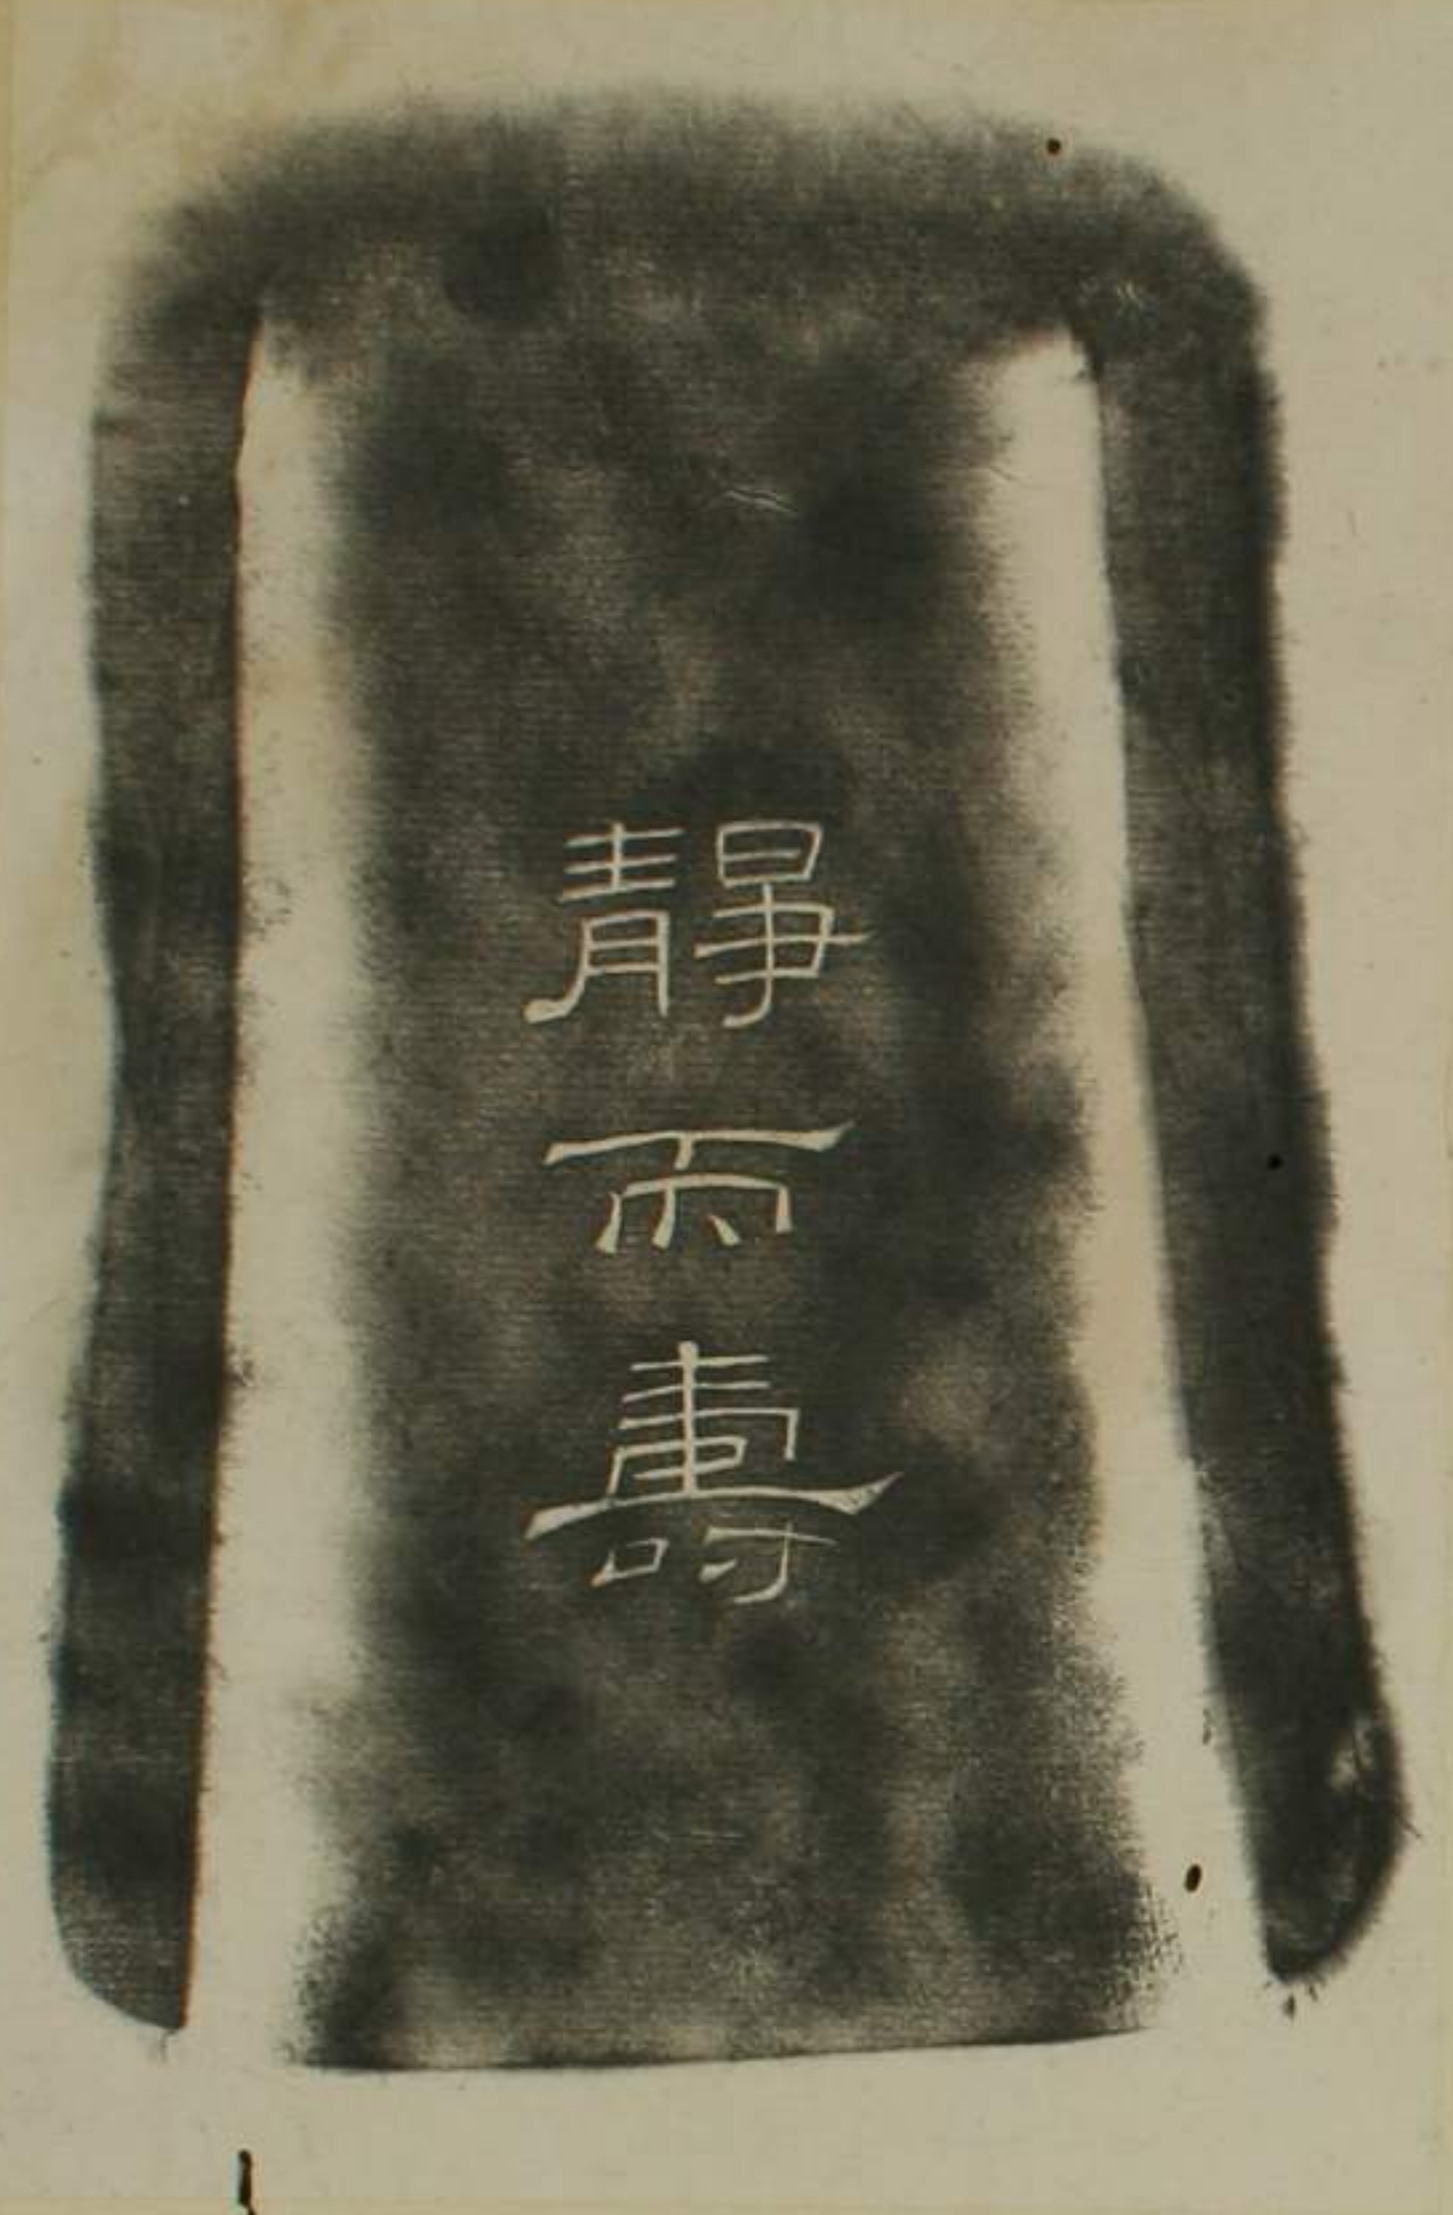 靜而壽